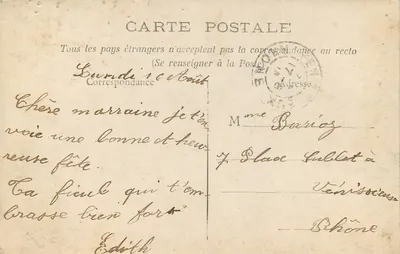 CARTE POSTALE
Tous les pays étrangers n'acceptent pas la correspondance au recto
(Se renseigner à la Poste)
Correspondance
Adresse
Lundi 10 Août
Chère marraine je t'en
voie une bonne et heu
reuse fête.
Ta ficule qui t'em
brasse bien fort
Edith
Mme Barioz
7 Place Sublet à
Vénissieux
Rhône